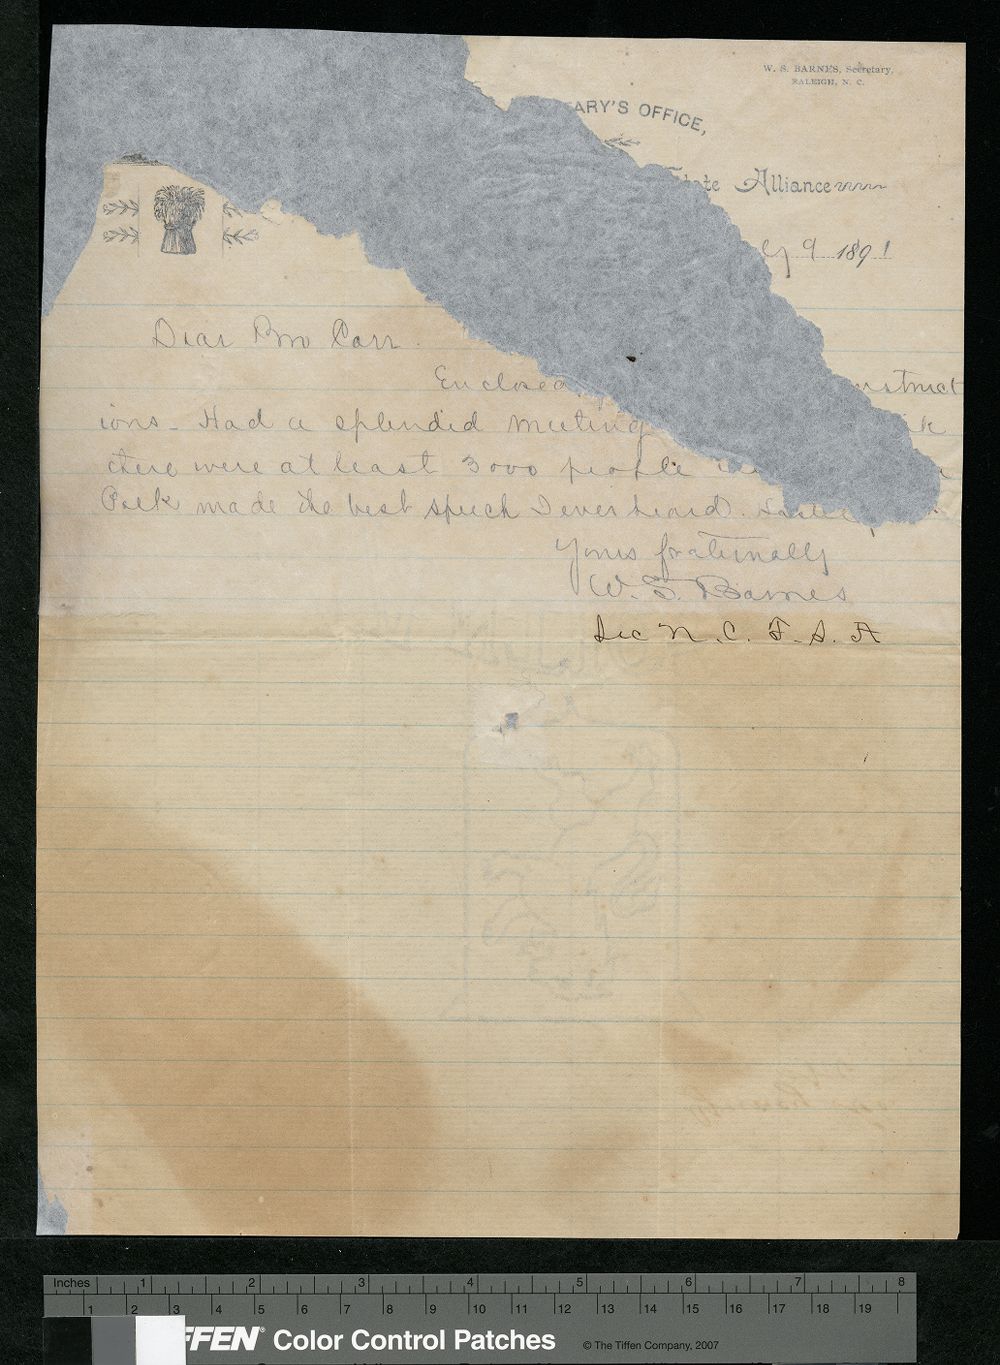 W. S. BARNES, Secretary,
RALEIGH, N. C.
ARY'S OFFICE,
State Alliance
9 1891
Dear Bro Carr
Enclosed
nstruct
ions - Had a splendid meeting
there were at least 3000 people
Polk made the best speech I ever heard.
Yours fraternally
W. S. Barnes
Sec N. C. F. S. A
Inches 1 2 3 4 5 6 7 8
1 2 3 4 5 6 7 8 9 10 11 12 13 14 15 16 17 18 19
FFEN® Color Control Patches © The Tiffen Company, 2007